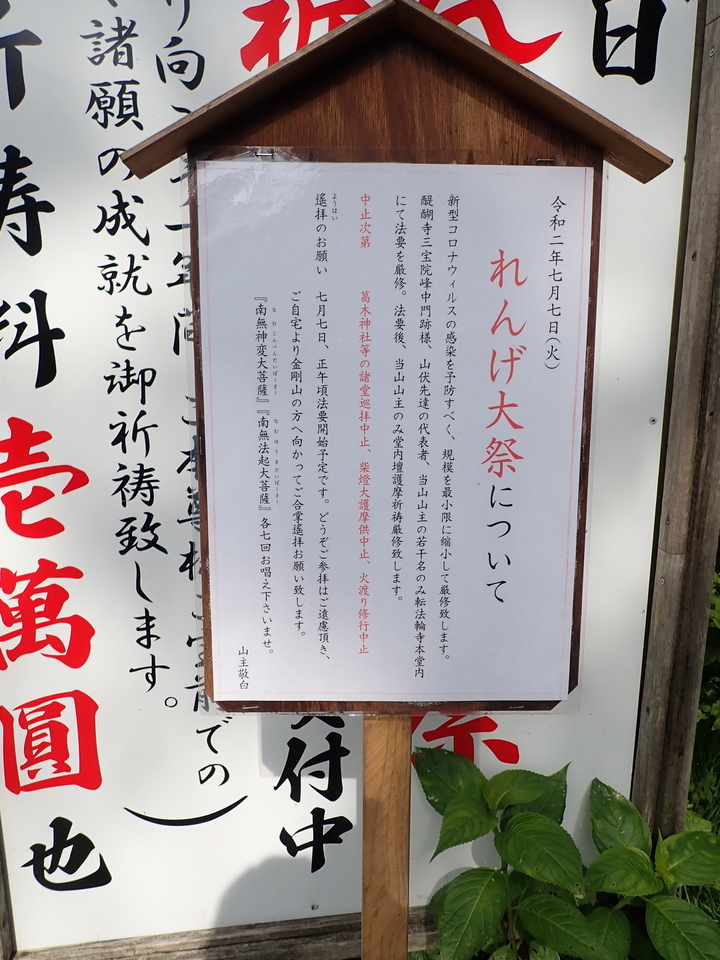 令和二年七月七日(火)
れんげ大祭について
新型コロナウィルスの感染を予防すべく、規模を最小限に縮小して厳修致します。
醍醐寺三宝院峰中門跡様、山伏先達の代表者、当山山主の若干名のみ転法輪寺本堂内
にて法要を厳修。法要後、当山山主のみ堂内壇護摩祈祷厳修致します。
中止次第 葛木神社等の諸堂巡拝中止、柴燈大護摩供中止、火渡り修行中止
ようはい
遙拝のお願い 七月七日、正午頃法要開始予定です。どうぞご参拝はご遠慮頂き、
ご自宅より金剛山の方へ向かってご合掌遙拝お願い致します。
なむじんべんだいぼーさー なむほうきだいぼーさー
『南無神変大菩薩』『南無法起大菩薩』各七回お唱え下さいませ。
山主敬白
日
付中
での)
諸願の成就を御祈祷致します。
祈祷料壱萬圓也